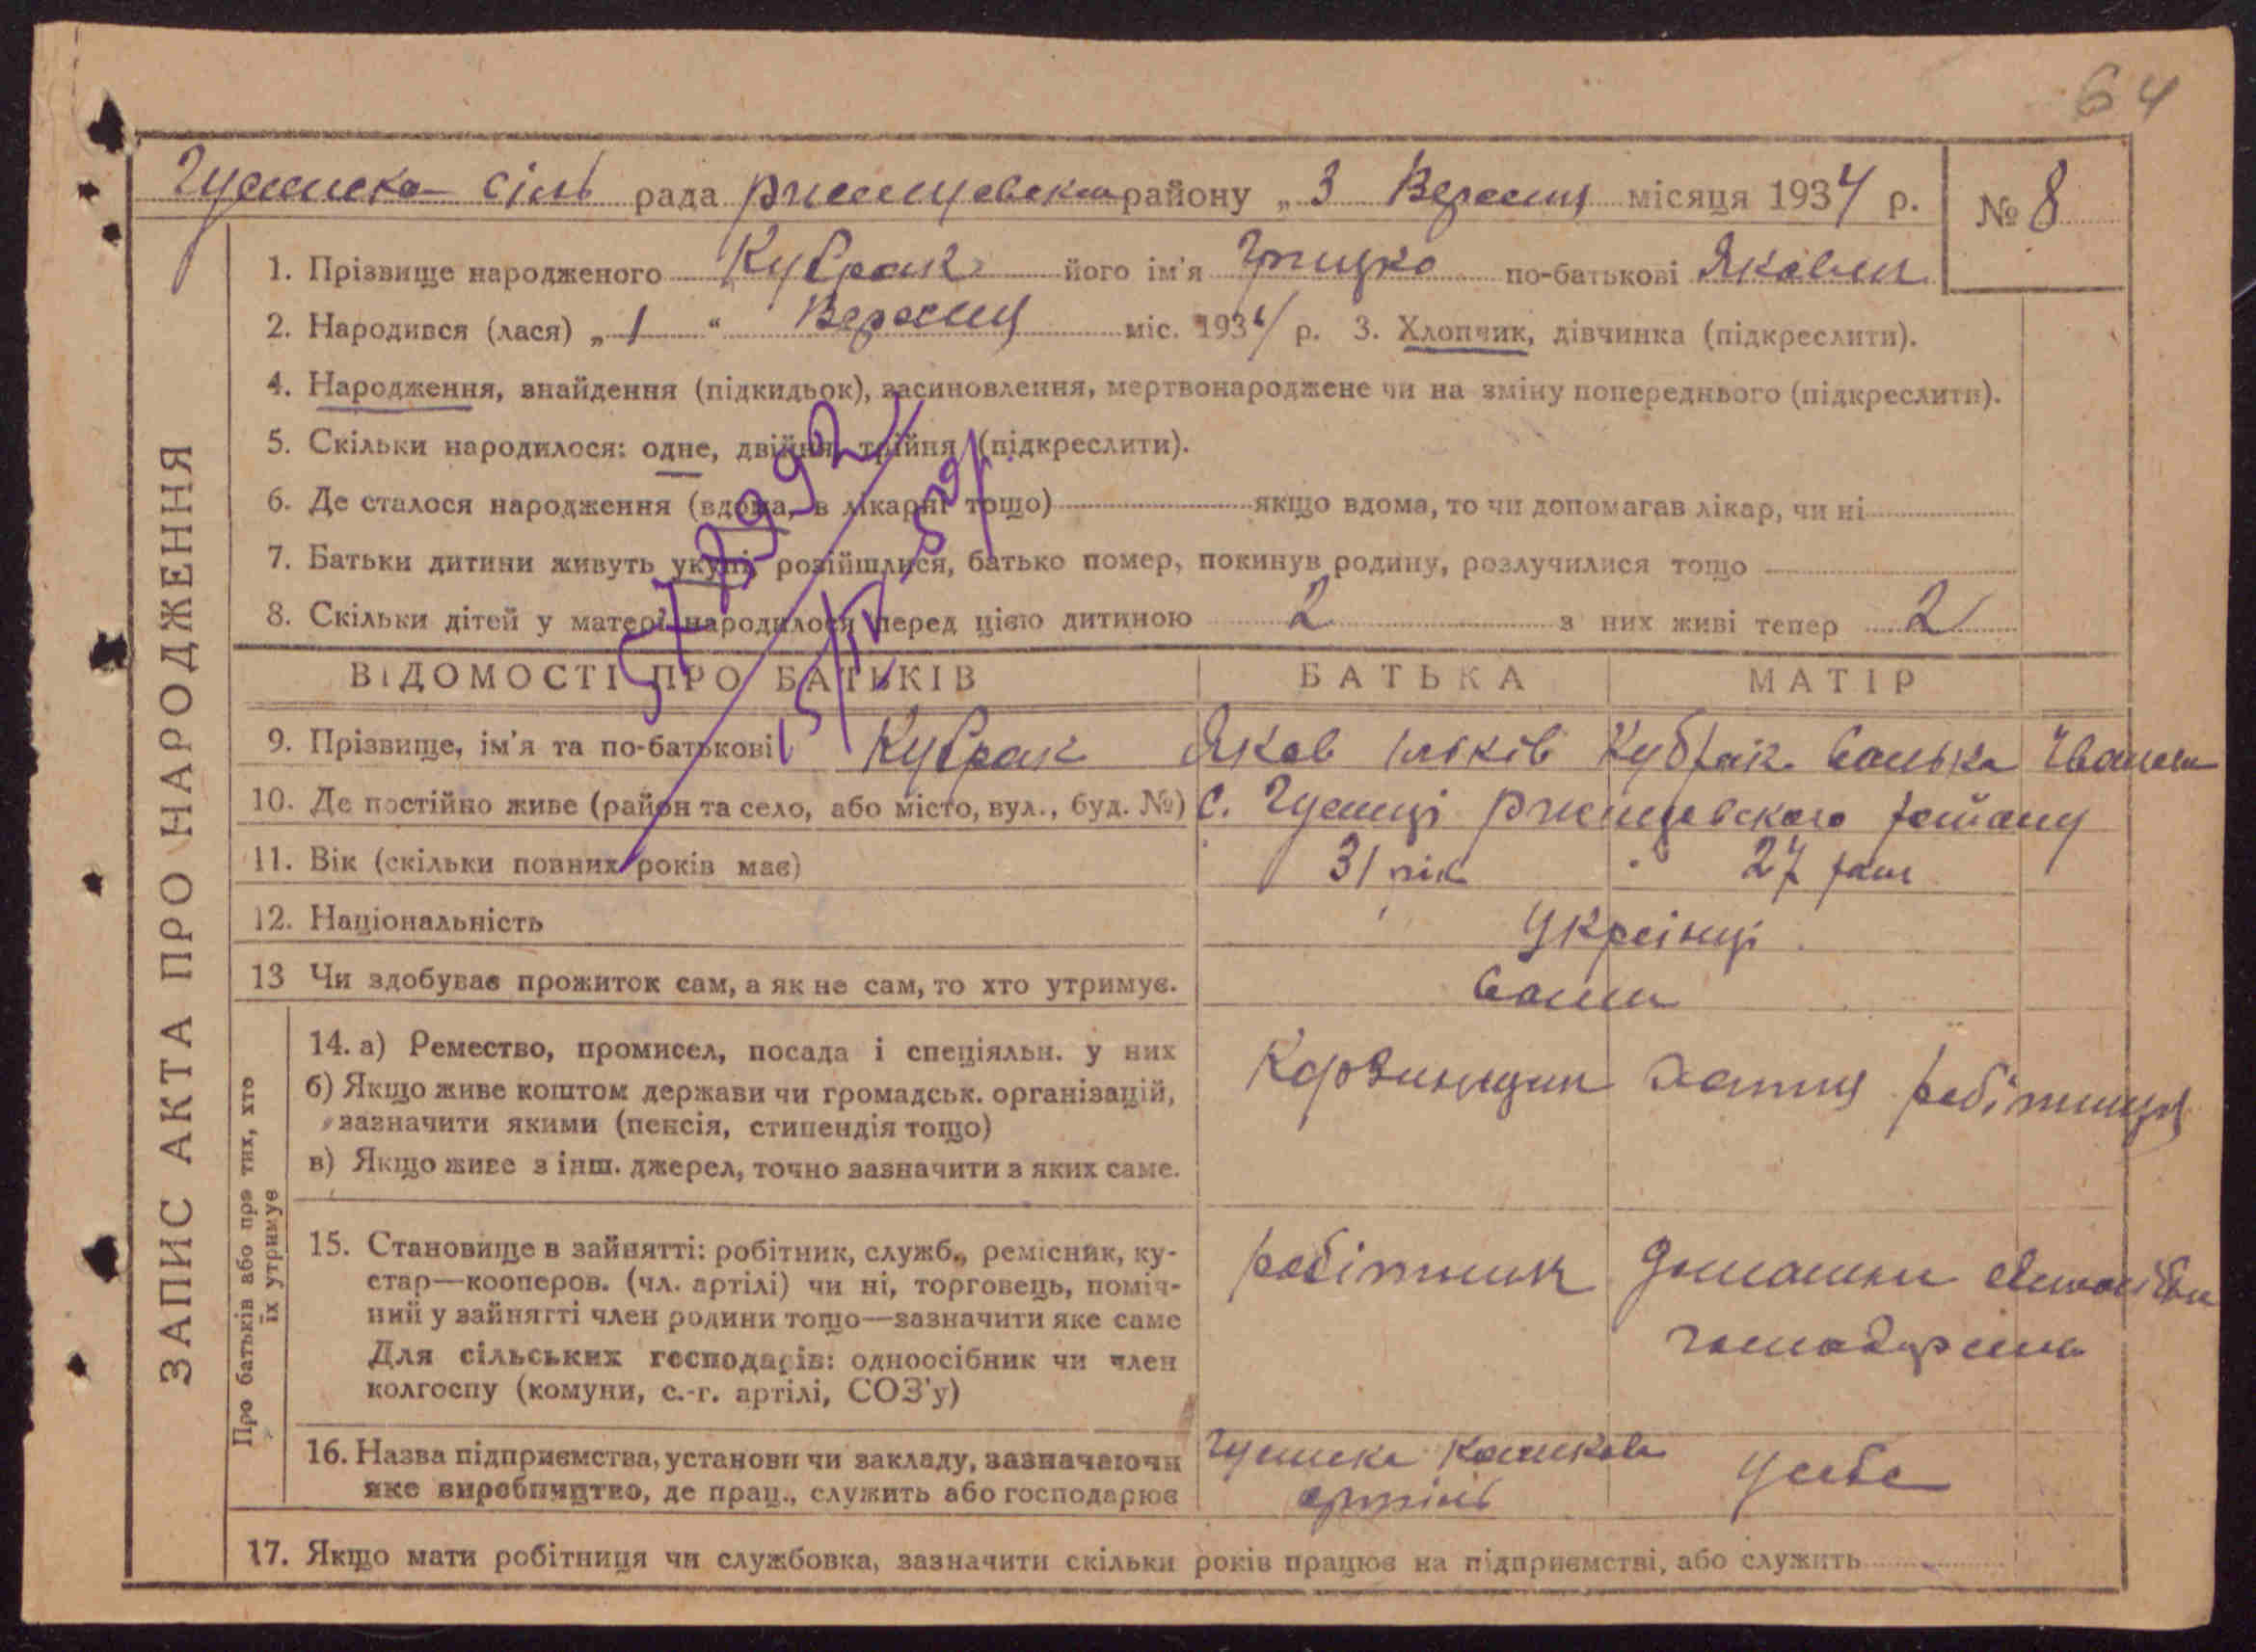 64
Гусинска сіль рада ржищевским району „ 3 Вересня місяця 1934 р. № 8
1. Прізвище народженого Кубрак його ім'я Грицко по-батькові Якович
2. Народився (лася) „ 1 “ Вересня міс. 1934 р. 3. Хлопчик, дівчинка (підкреслити).
4. Народження, знайдення (підкидьок), засиновлення, мертвонароджене чи на зміну попереднього (підкреслити).
5. Скільки народилося: одне, двійня, трійня (підкреслити).
6. Де сталося народження (вдома, в лікарні тощо) якщо вдома, то чи допомагав лікар, чи ні
7. Батьки дитини живуть укупі, розійшлися, батько помер, покинув родину, розлучилися тощо
8. Скільки дітей у матері народилося перед цією дитиною 2 з них живі тепер 2
ВІДОМОСТІ ПРО БАТЬКІВ БАТЬКА МАТІР
9. Прізвище, ім'я та по-батькові Кубрак Яков Кубрак Санька
10. Де постійно живе (район та село, або місто, вул., буд. №) с. Гусинці ржищевского району
11. Вік (скільки повних років має) 31 рік 27 рок
12. Національність Українці
13 Чи здобуває прожиток сам, а як не сам, то хто утримує. Сами
14. а) Ремество, промисел, посада і спеціяльн. у них Корзинщик Хатня робітниця
б) Якщо живе коштом держави чи громадськ. організацій,
зазначити якими (пенсія, стипендія тощо)
в) Якщо живе з інш. джерел, точно зазначити з яких саме.
15. Становище в зайнятті: робітник, служб., ремісник, ку-
стар—кооперов. (чл. артілі) чи ні, торговець, поміч-
ний у зайнятті член родини тощо—зазначити яке саме
Для сільських господарів: одноосібник чи член
колгоспу (комуни, с.-г. артілі, СОЗ'у)
робітник
16. Назва підприємства, установи чи закладу, зазначаючи
яке виробництво, де прац., служить або господарює
Гусинска кошикова
артіль
Усебе
17. Якщо мати робітниця чи службовка, зазначити скільки років працює на підприємстві, або служить
ЗАПИС АКТА ПРО НАРОДЖЕННЯ
Про батьків або про тих, хто
їх утримує